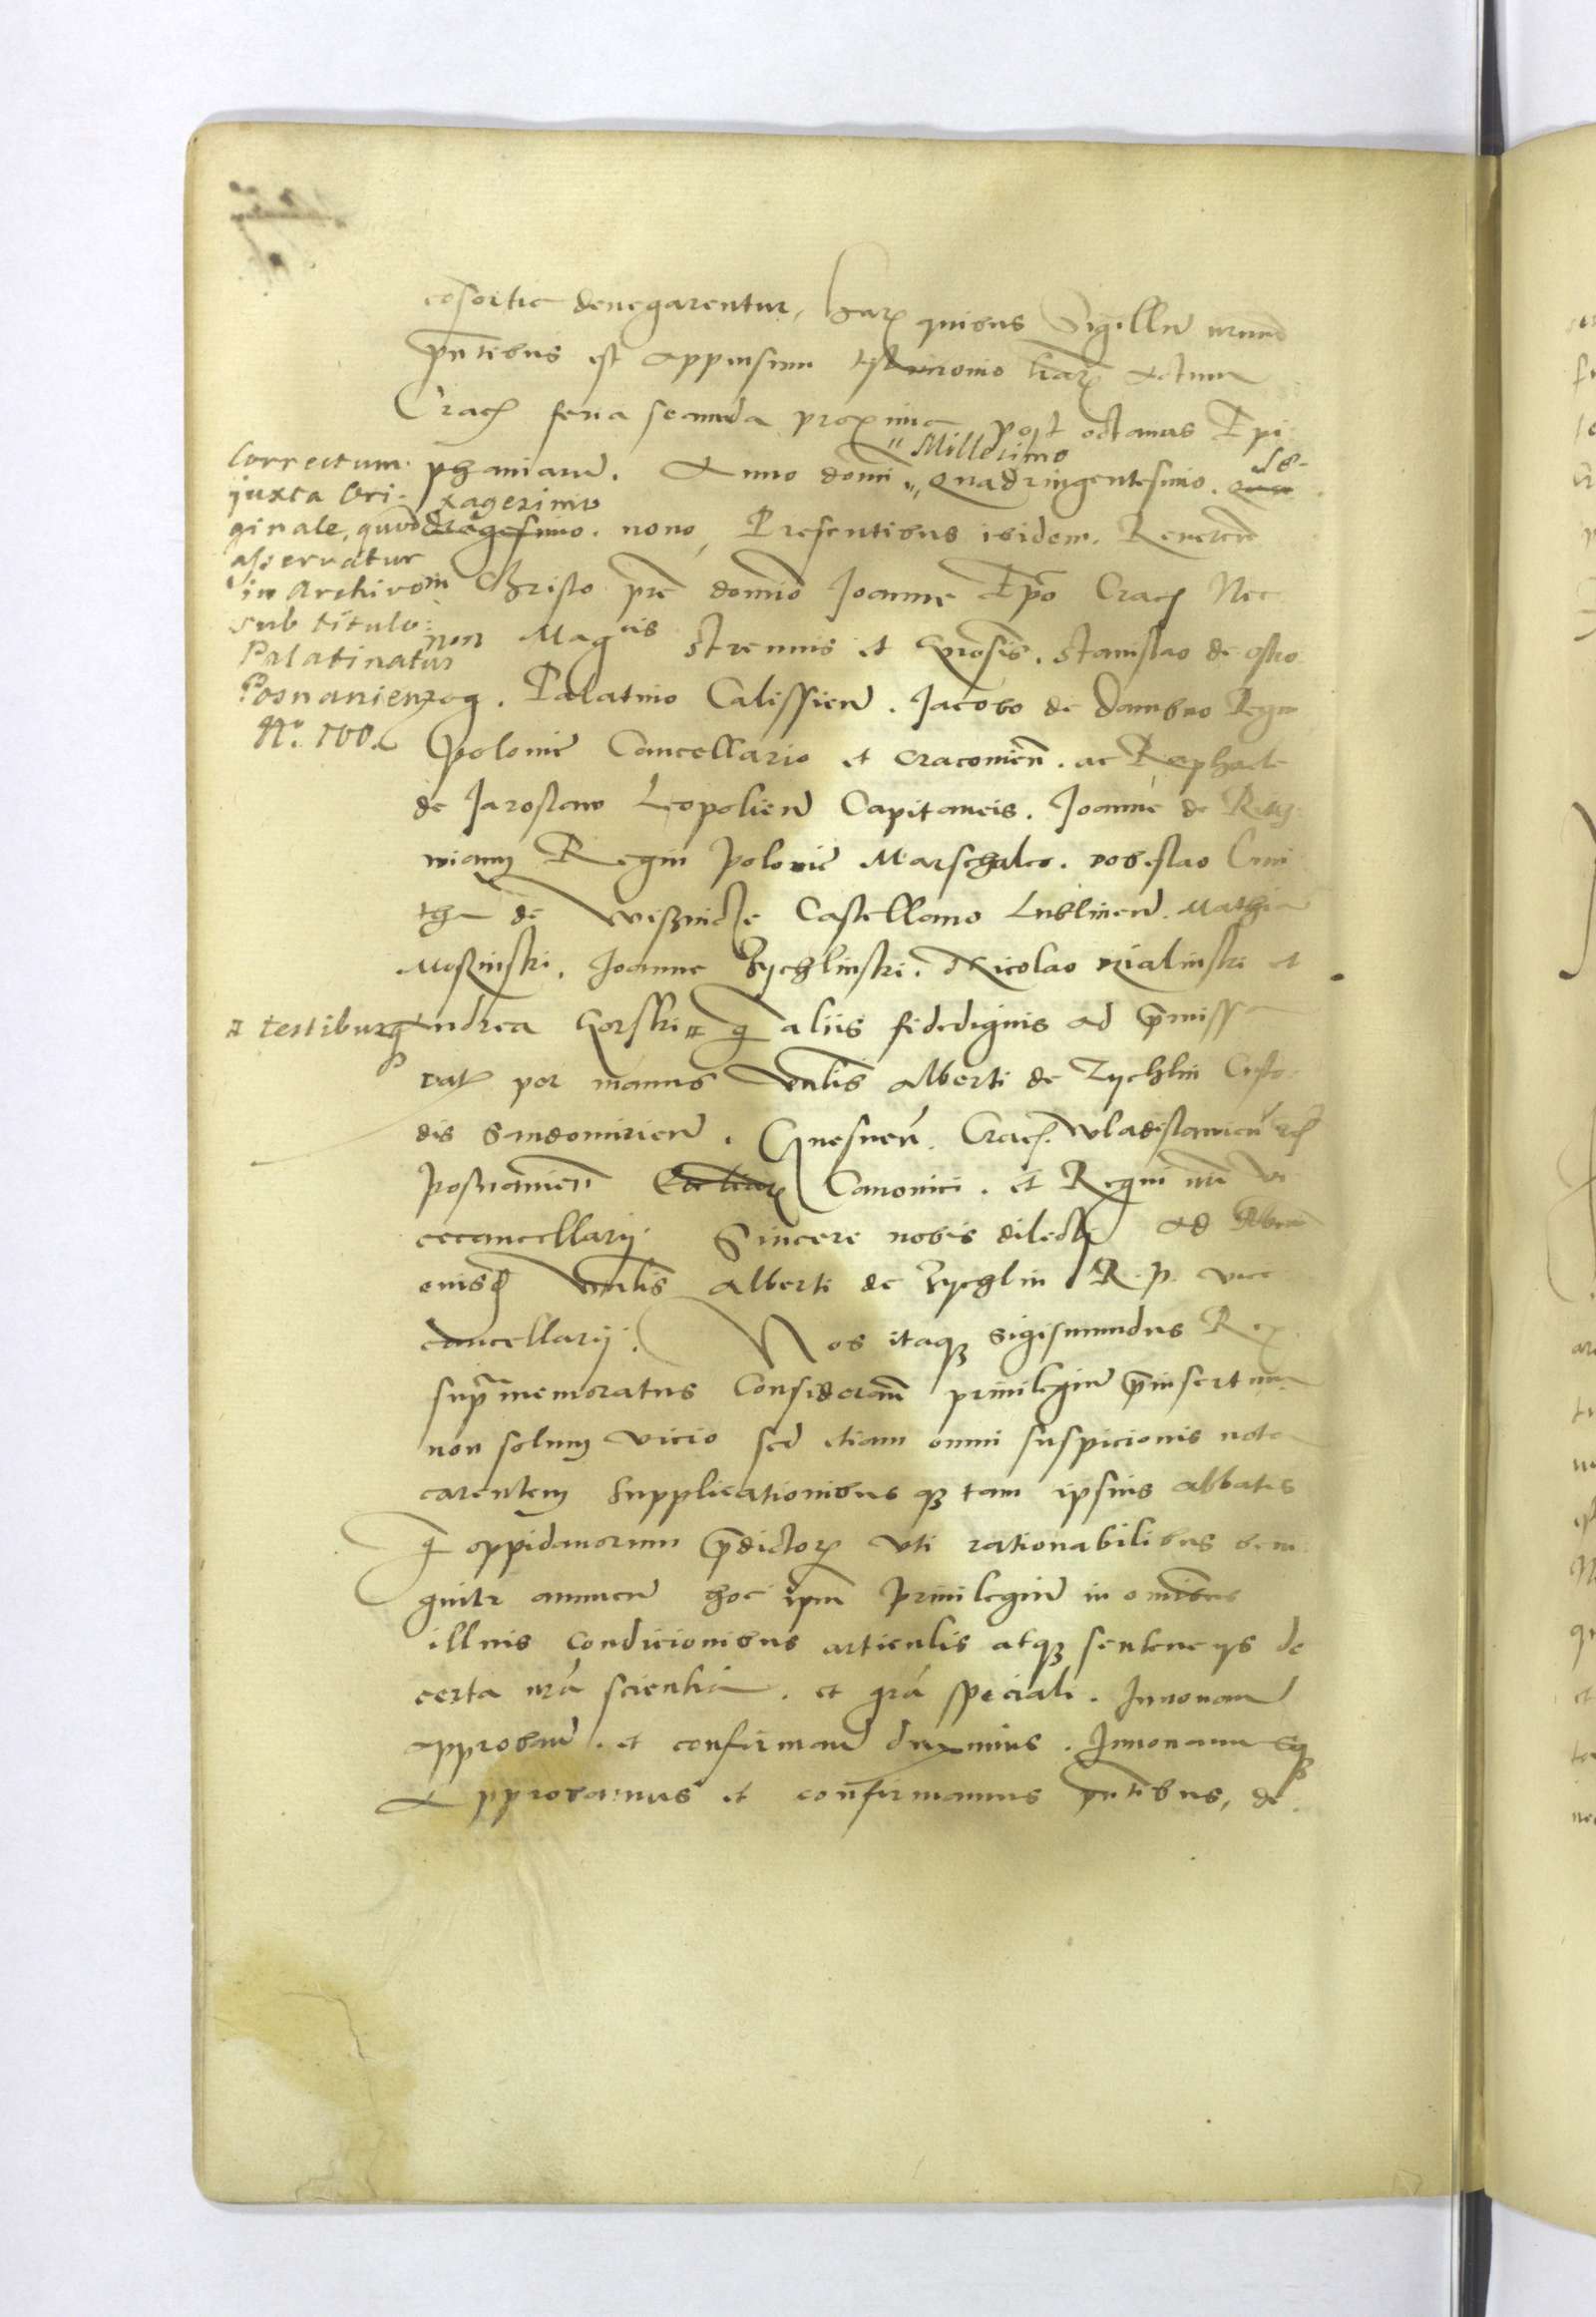 cōsortie denegarentur, harꝫ quibus Sigillū nrūm
pn̄tibus est appensum testimonio lr̄arꝫ Actum
Cracꝭ feria secunda proxima post octauas Epi
phaniarū. Anno domī " Millesimo " Quadringentesimo. Se-
xagesimo nono, Presentibus ibidem. Reuerēn
in Christo pr̄e domīo Joanne Ep̄o Cracꝭ Nec
non Magcis Strenuis et Gn̄osis. Stanislao de Ostro
rog. Palatino Calissien̄. Jacobo de Dambno Regni
Polonie Cancellario et Cracouien̄. ac Raphaele
de Jaroslaw Leopolien̄ Capitaneis. Joanne de Rithw
wiany Regni Polonie Marschalco. Dobeslao Cmi
tha de Wisznicze Castellano Lublinen̄. Mathia
Moszinski. Joanne Zychlinski. Nicolao Rzialinski et
Andrea Gorski ⌗ qꝫ aliis fidedignis ad p̄missa
Dat. per manus Ven̄lis Alberti de Zychlin Custo
dis Sandomirien̄. Gnesnen̄. Cracꝭ. Wladislauien̄
Posnanien̄ Canonici. et Regni nr̄i Vi
cecancellarij. Sincere nobis dilecti Ad
eiusdꝫ Ven̄lis Alberti de Zychlin R. P. vice
cancellarij. Nos itaqꝫ Sigismundus Rex
supramemoratus Considerān̄ priuilegiū p̄insertum
non solum vicio sed etiam omni suspicionis nota
carentem Supplicationibus qꝫ tam ipsius Abbatis
qꝫ oppidanorum p̄dictorꝫ vti rationabilibus beni
gnitr̄ annuen̄ hoc ip̄m Priuilegiū in omnibus
illius condicionibus articulis atqꝫ sentencijs de
certa nr̄a scientia. et gr̄a speciali. Innouan̄
approban̄. et confirman̄ duximus. Innouamusqꝫ
Approbamus et confirmamus pn̄tibus, de
Correctum
juxta Ori-
ginale, quod
asservatur
in Archivo
sub titulo:
Palatinatus
Posnaniens
No. 100.
⌗ testibus